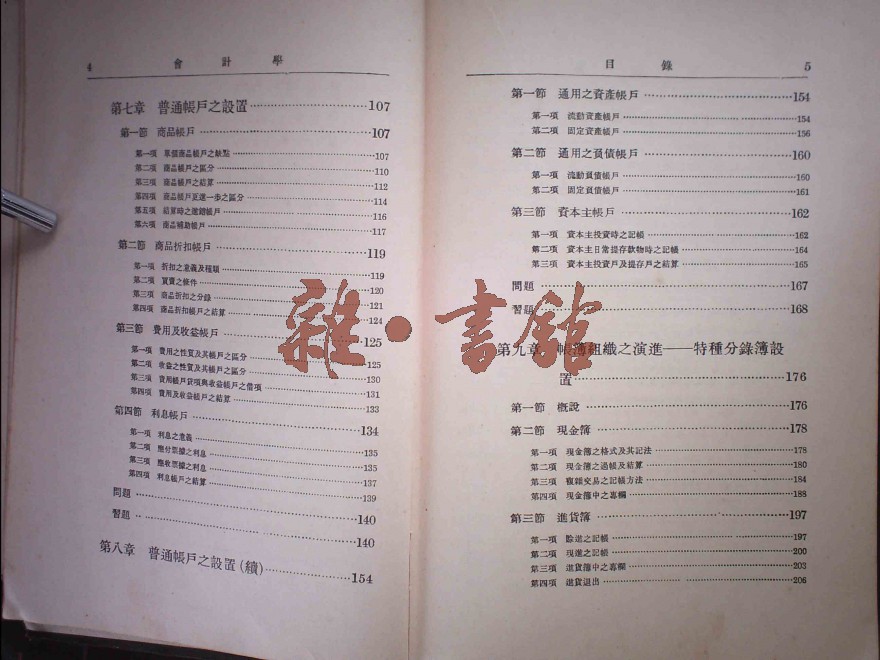 4 會計學
第七章 普通帳戶之設置 107
第一節 商品帳戶 107
第一項 單個商品帳戶之缺點 107
第二項 商品帳戶之區分 110
第三項 商品帳戶之結算 112
第四項 商品帳戶更進一步之區分 114
第五項 結算時之進銷帳戶 116
第六項 商品補助帳戶 117
第二節 商品折扣帳戶 119
第一項 折扣之意義及種類 119
第二項 買賣之條件 120
第三項 商品折扣之分錄 121
第四項 商品折扣帳戶之結算 124
第三節 費用及收益帳戶 125
第一項 費用之性質及其帳戶之區分 125
第二項 收益之性質及其帳戶之區分 130
第三項 費用帳戶貸項與收益帳戶之借項 131
第四項 費用及收益帳戶之結算 133
第四節 利息帳戶 134
第一項 利息之意義 135
第二項 應付票據之利息 135
第三項 應收票據之利息 137
第四項 利息帳戶之結算 139
問題 140
習題 140
第八章 普通帳戶之設置(續) 154
目錄 5
第一節 通用之資產帳戶 154
第一項 流動資產帳戶 154
第二項 固定資產帳戶 156
第二節 通用之負債帳戶 160
第一項 流動負債帳戶 160
第二項 固定負債帳戶 161
第三節 資本主帳戶 162
第一項 資本主投資時之記帳 162
第二項 資本主日常提存款物時之記帳 164
第三項 資本主投資戶及提存戶之結算 165
問題 167
習題 168
第九章 帳簿組織之演進——特種分錄簿設
置 176
第一節 概說 176
第二節 現金簿 178
第一項 現金簿之格式及其記法 178
第二項 現金簿之過帳及結算 180
第三項 複雜交易之記帳方法 184
第四項 現金簿中之專欄 188
第三節 進貨簿 197
第一項 賒進之記帳 197
第二項 現進之記帳 200
第三項 進貨簿中之專欄 203
第四項 進貨退出 206
雜·書館